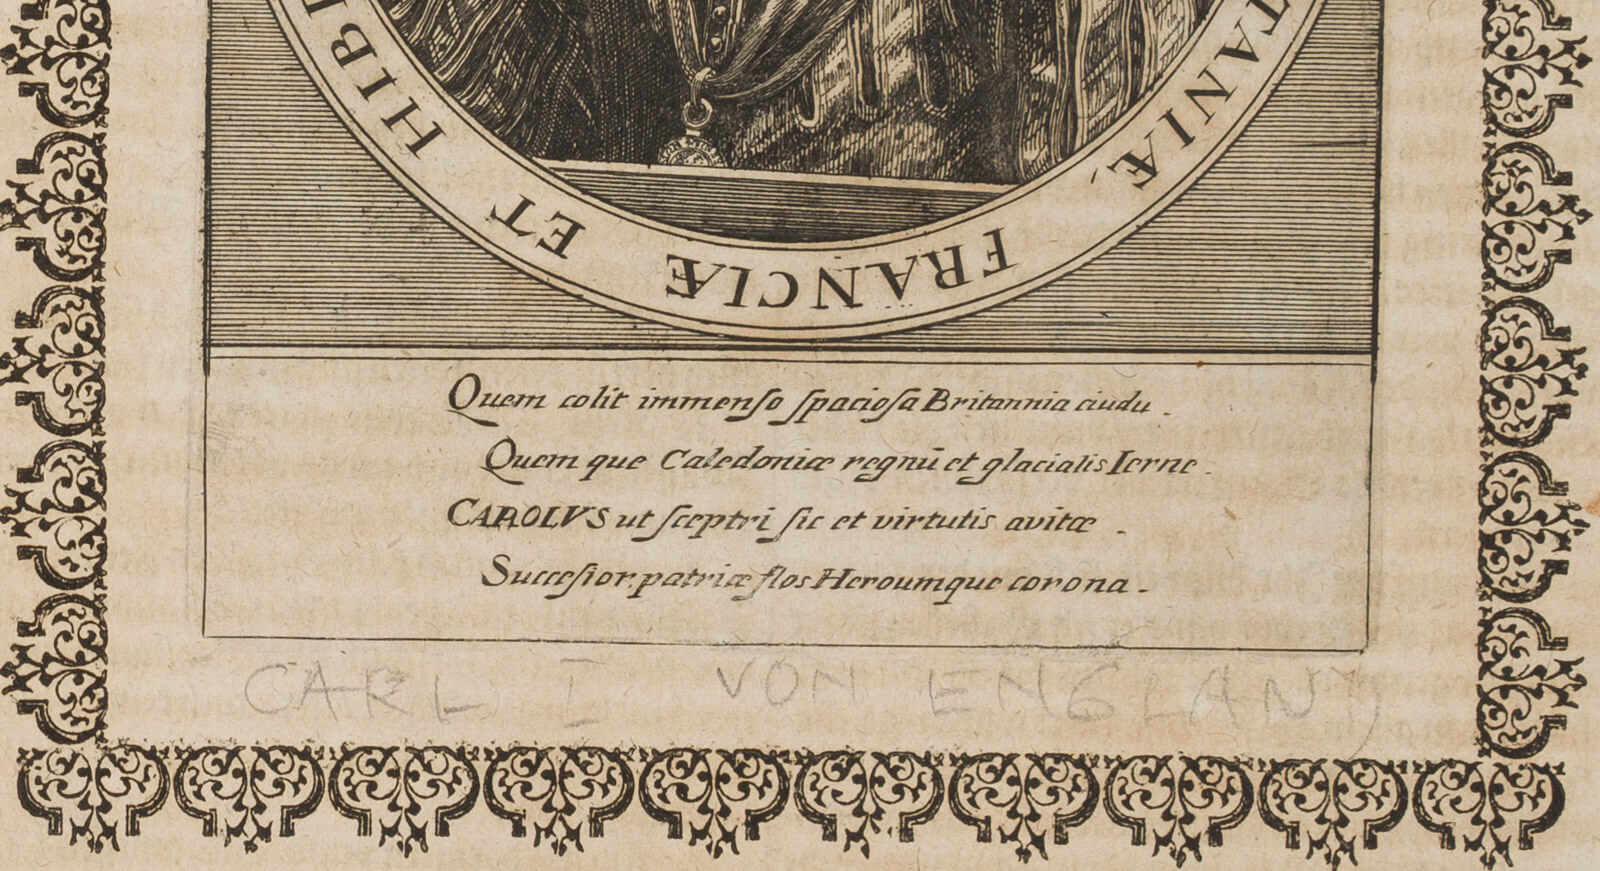 TANIÆ FRANCIÆ ET HIB
Quem colit immenſo ſpacioſa Britannia ciudu.
Quem que Caledoniæ regnū et glacialis Ierne.
CAROLVS ut ſceptri ſic et virtutis avitæ.
Succeſior. patriæ flos Heroumque corona.
CARL I VON ENGLAND